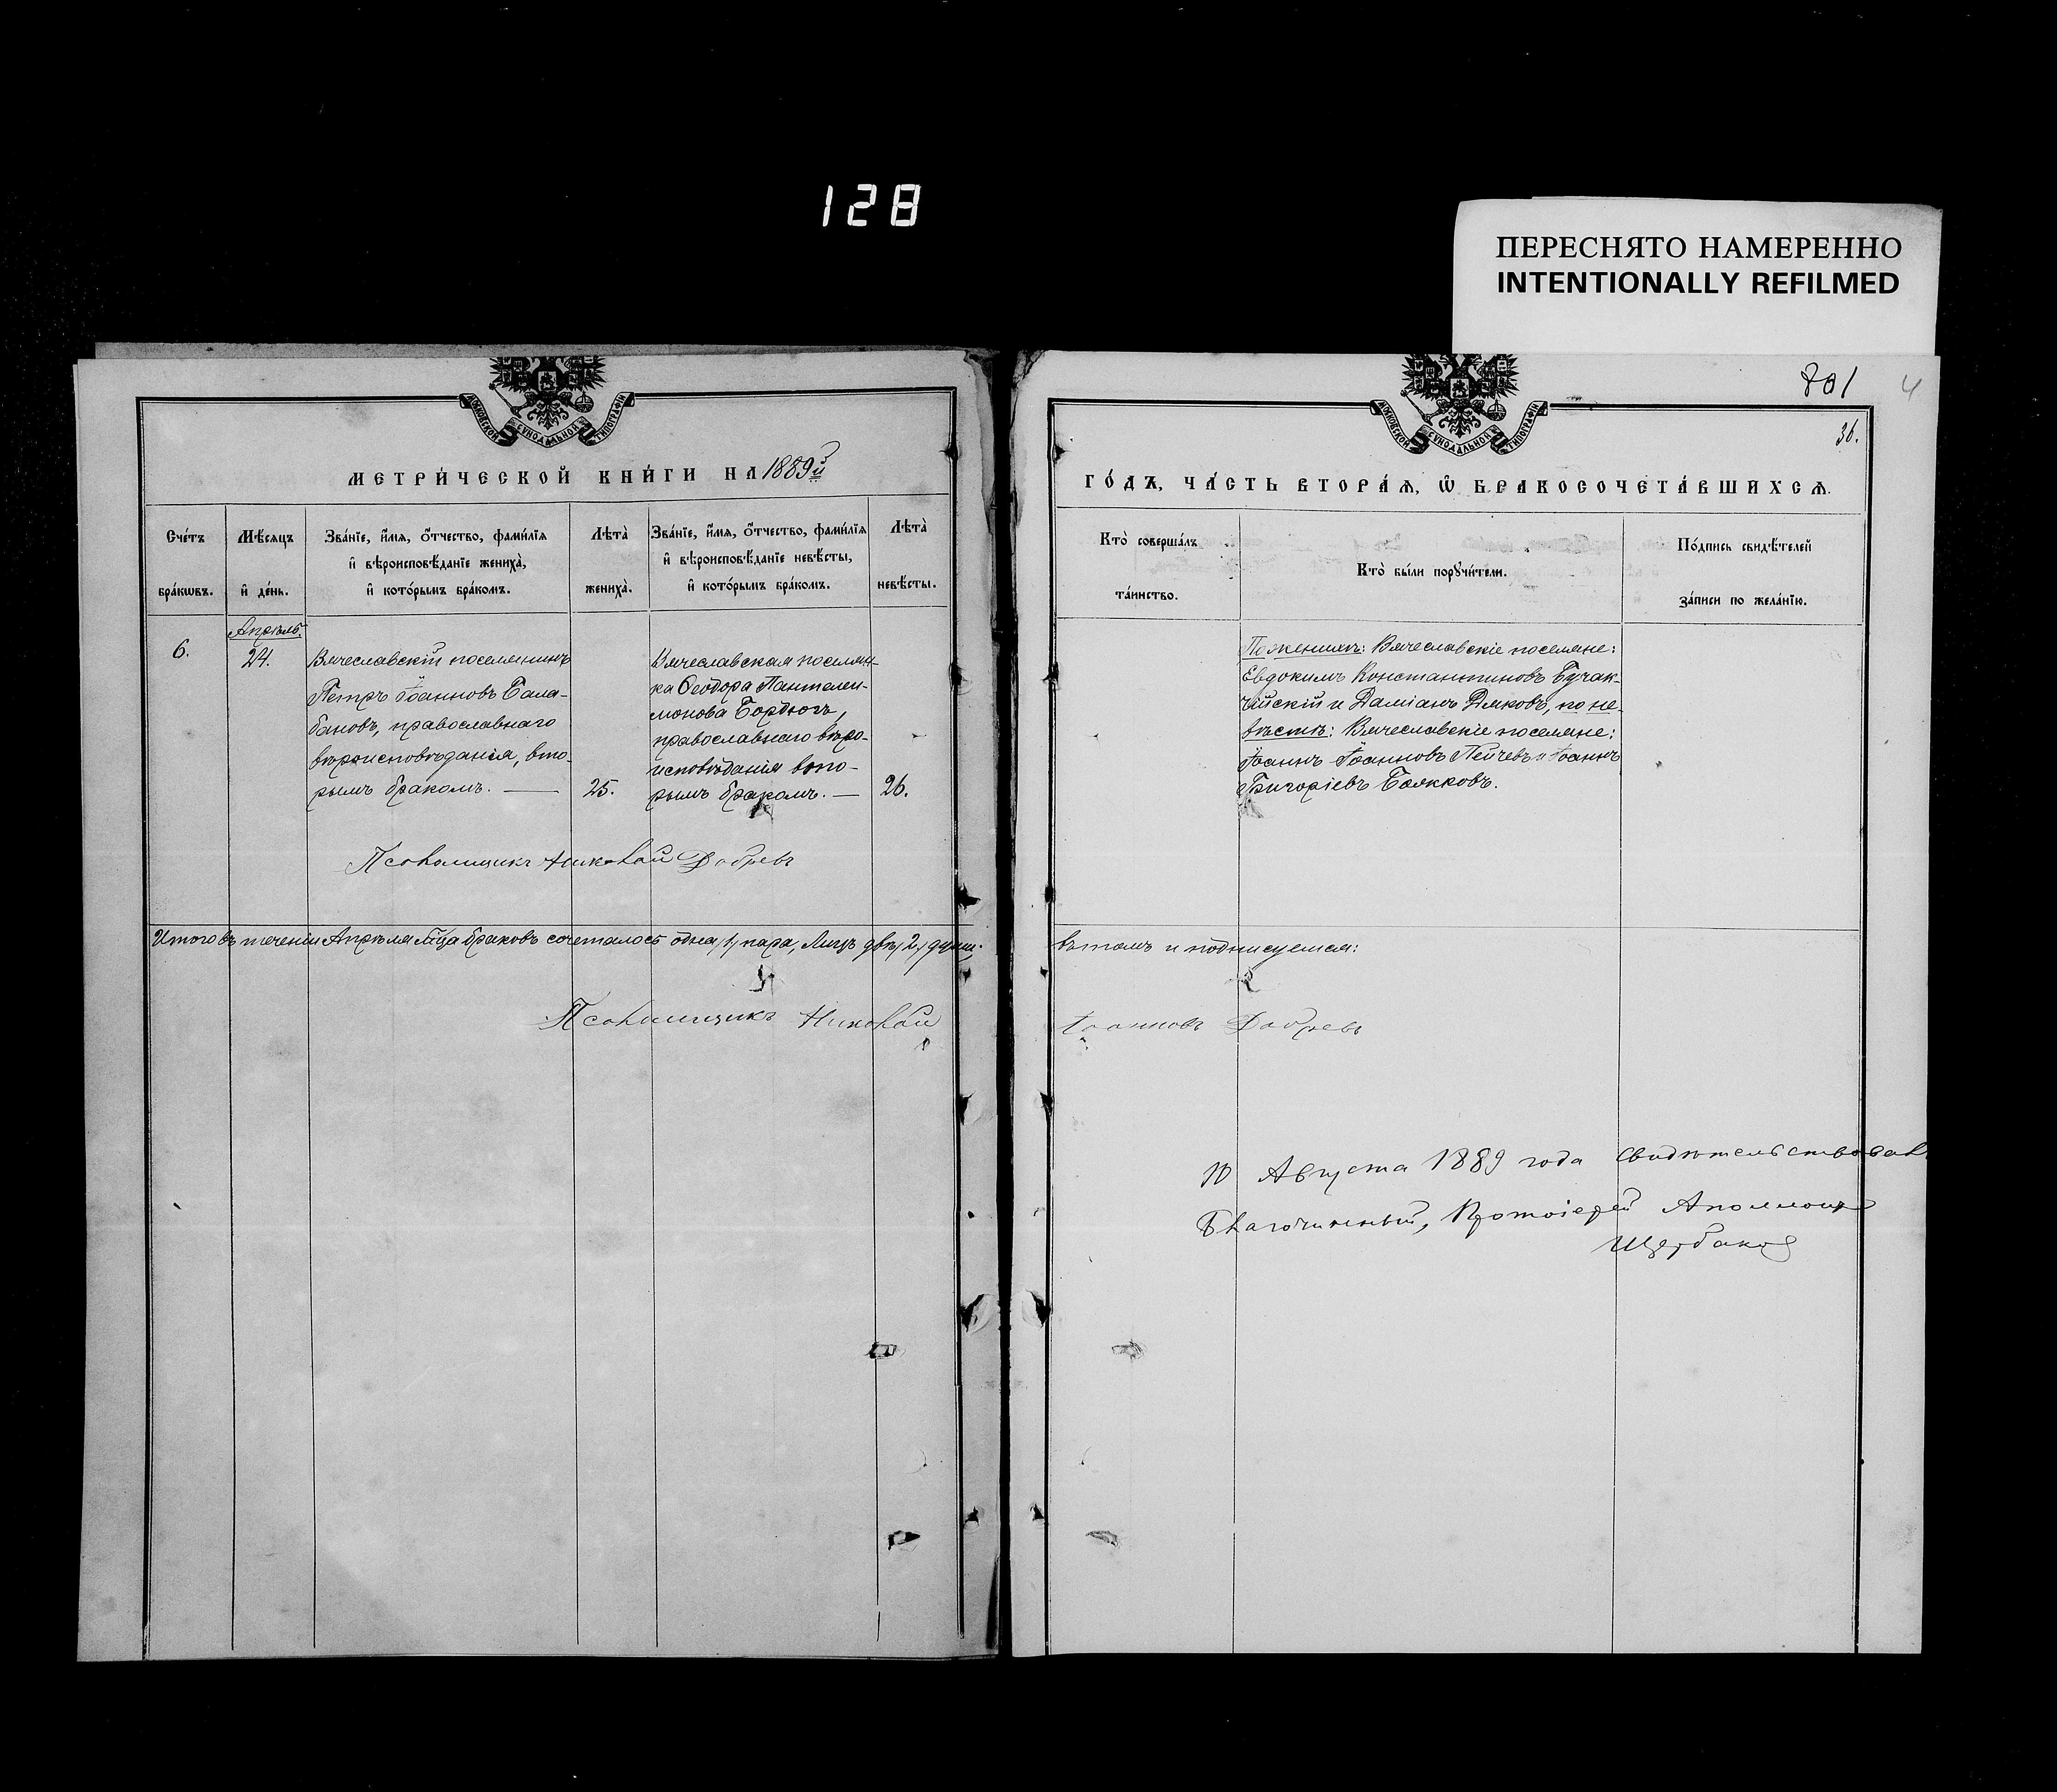 128
ПЕРЕСНЯТО НАМЕРЕННО
INTENTIONALLY REFILMED
МОСКОВСКОЙ СУНОДАЛЬНОЙ ТИПОГРАФІИ
МЕТРИ́ЧЕСКОЙ КНИ́ГИ НА 1889й
Сче́тъ бра́кѡвъ.
Мѣ́сяцъ и҆ де́нь.
Зва́нїе, и҆́мя, ѻ҆́тчество, фами́лїя
и҆ вѣроисповѣ́данїе жениха̀,
и҆ кото́рымъ бра́комъ.
Лѣта̀ жениха̀.
Зва́нїе, и҆́мя, ѻ҆́тчество, фами́лїя
и҆ вѣроисповѣ́данїе невѣ́сты,
и҆ кото́рымъ бра́комъ.
Лѣта̀ невѣ́сты.
6.
Апрѣль.
24.
Вячеславскій поселянинъ
Петръ Іоанновъ Бала-
бановъ, православнаго
вѣроисповѣданія, вто-
рымъ бракомъ. —
25.
Вячеславская поселян-
ка Ѳеодора Пантелеи-
монова Бордюгъ,
православнаго вѣро-
исповѣданія вто-
рымъ бракомъ. —
26.
Псаломщикъ Николай Добревъ
Итого въ теченіи Апрѣля м-ца браковъ сочеталось одна /1/ пара, Лицъ двѣ /2/ души.
Псаломщикъ Николай
МОСКОВСКОЙ СУНОДАЛЬНОЙ ТИПОГРАФІИ
801
4
36.
ГО́ДЪ, ЧА́СТЬ ВТОРА́Я, Ѡ҆ БРАКОСОЧЕТА́ВШИХСЯ.
Кто̀ соверша́лъ
та́инство.
Кто̀ бы́ли порꙋчи́тели.
По́дпись свидѣ́телей
за́писи по жела́нїю.
По женихѣ: Вячеславскіе поселяне:
Евдокимъ Константиновъ Бучак-
чійскій и Даміанъ Дяковъ, по не-
вѣстѣ: Вячеславскіе поселяне:
Іоаннъ Іоанновъ Пейчевъ и Іоаннъ
Григоріевъ Бояковъ.
въ томъ и подписуемся:
Іоанновъ Добревъ
10 Августа 1889 года свидѣтельствовалъ
Благочинный, Протоіерей Аполлонъ
Щербаковъ